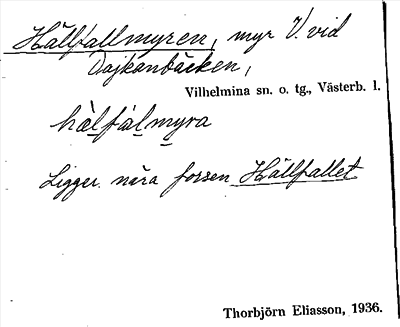 Hällfallmyren, myr V. vid
Dajkanbäcken,
Vilhelmina sn. o. tg., Västerb. l.
hä̀lfálmyra
Ligger nära forsen Hällfallet
Thorbjörn Eliasson, 1936.